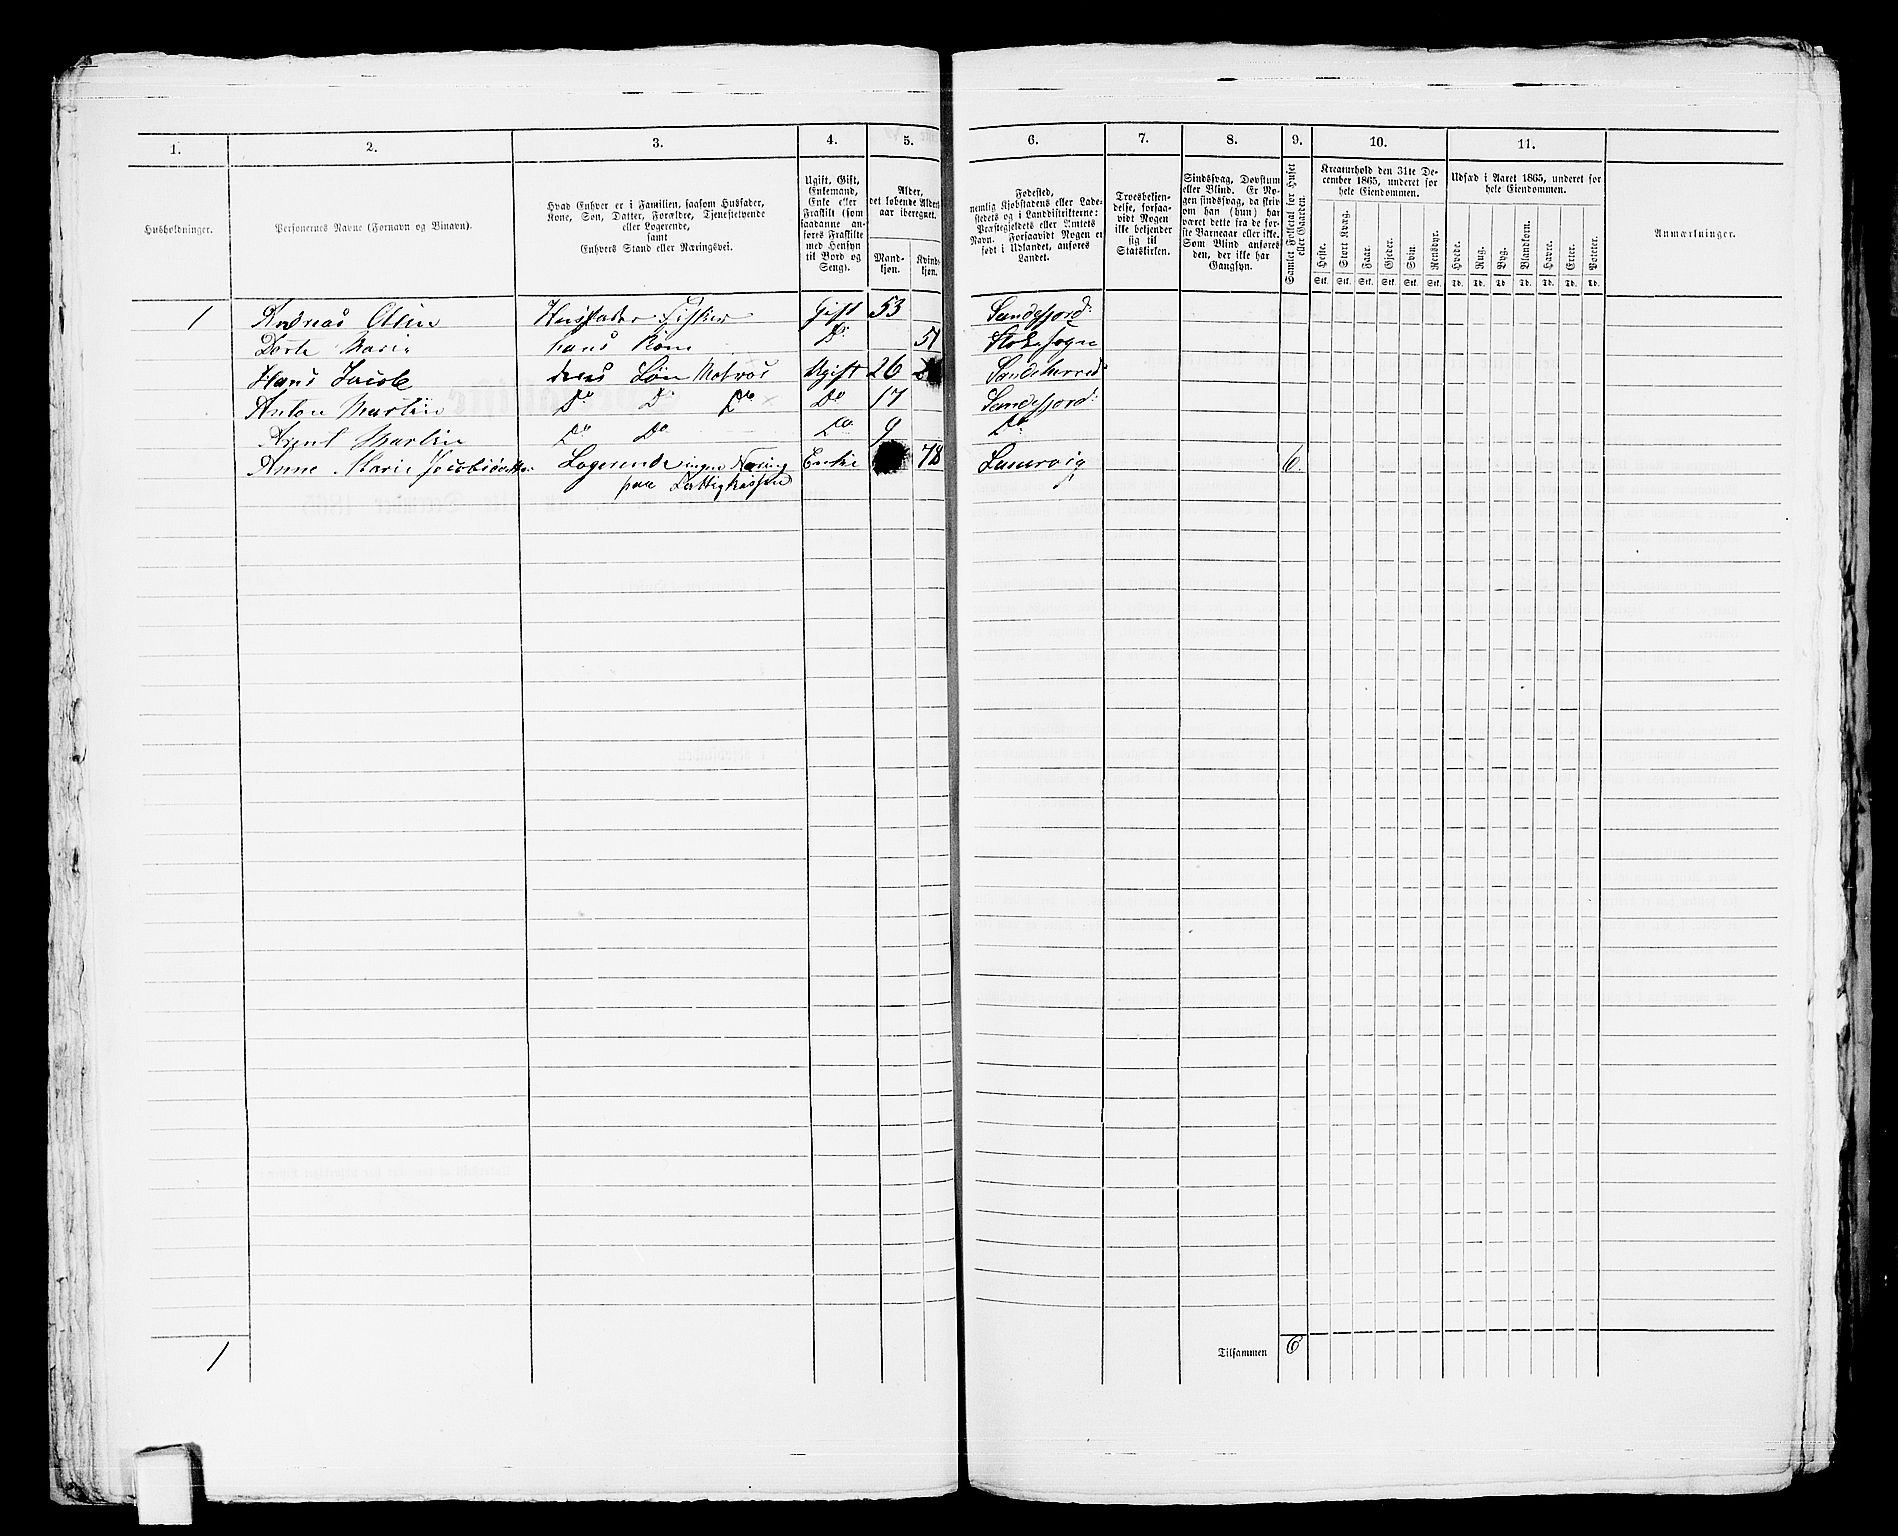 1. 2. 3. 4. 5. 6. 7. 8. 9. 10. 11.
Husholdninger.
Personernes Navne (Fornavn og Binavn).
Hvad Enhver er i Familien, saasom Husfader,
Kone, Søn, Datter, Forældre, Tjenestetyende
eller Logerende,
samt
Enhvers Stand eller Næringsvei.
Ugift, Gift,
Enkemand,
Enke eller
Fraskilt (som
saadanne an-
føres Fraskilte
med Hensyn
til Bord og
Seng).
Alder,
det løbende Alders-
aar iberegnet.
Mand-
kjøn.
Kvind-
kjøn.
Fødested,
nemlig Kjøbstadens eller Lade-
stedets og i Landdistrikterne:
Præstegjeldets eller Amtets
Navn. Forsaavidt Nogen er
født i Udlandet, anføres
Landet.
Troesbekjen-
delse, forsaa-
vidt Nogen
ikke bekjender
sig til
Statskirken.
Sindssvag, Døvstum
eller Blind. Er No-
gen sindssvag, da skriv
om han (hun) har
været dette fra de før-
ste Barneaar eller ikke.
Som Blind anføres
den, der ikke har
Gangsyn.
Samlet Folketal for Huset
eller Gaarden.
Kreaturhold den 31te De-
cember 1865, underet for
hele Eiendommen.
Heste. Stort Kvæg. Faar. Gjeder. Svin. Rensdyr.
Stk. Stk. Stk. Stk. Stk. Stk.
Udsæd i Aaret 1865, underet for
hele Eiendommen.
Hvede. Rug. Byg. Blandkorn. Havre. Erter. Poteter.
Td. Td. Td. Td. Td. Td. Td.
Anmærkninger.
1 Andreas Olsen Husfader Fisker Gift 53 Sandefjord
Dorte Marie hans Kone Do 51 Stokesogn
Hans Jacob deres Søn Matros Ugift 26 Sandeherred
Anton Martin Do Do Do Do 17 Sandefjord
Martin Do Do Do 9 Do
Anne Marie Jacobsdatter Logerende ingen Næring Enke 78 Laurvig 6
paa Fattigkassen
1 Tilsammen 6